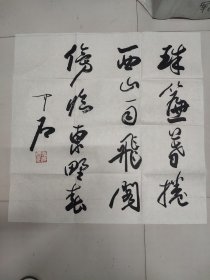 珠簾暮捲
西山雨飛閣
傍臨東野春
中石